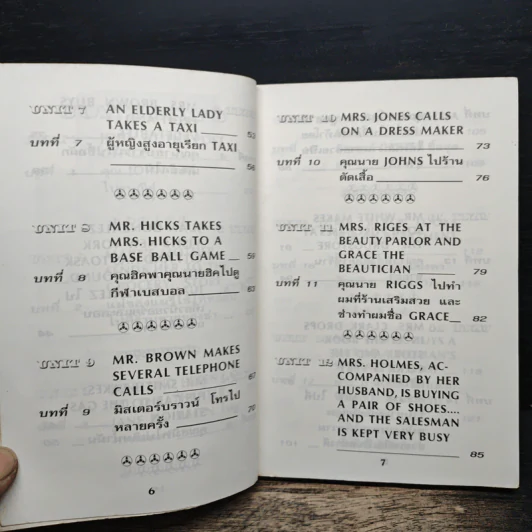 UNIT 7 AN ELDERLY LADY
TAKES A TAXI 53
บทที่ 7 ผู้หญิงสูงอายุเรียก TAXI
56
UNIT 8 MR. HICKS TAKES
MRS. HICKS TO A
BASE BALL GAME 59
บทที่ 8 คุณฮิคพาคุณนายฮิคไปดู
กีฬาเบสบอล 63
UNIT 9 MR. BROWN MAKES
SEVERAL TELEPHONE
CALLS 67
บทที่ 9 มิสเตอร์บราวน์ โทรไป
หลายครั้ง 70
6
UNIT 10 MRS. JONES CALLS
ON A DRESS MAKER
73
บทที่ 10 คุณนาย JOHNS ไปร้าน
ตัดเสื้อ 76
UNIT 11 MRS. RIGES AT THE
BEAUTY PARLOR AND
GRACE THE
BEAUTICIAN 79
บทที่ 11 คุณนาย RIGGS ไปทำ
ผมที่ร้านเสริมสวย และ
ช่างทำผมชื่อ GRACE 82
UNIT 12 MRS. HOLMES, AC-
COMPANIED BY HER
HUSBAND, IS BUYING
A PAIR OF SHOES....
AND THE SALESMAN
IS KEPT VERY BUSY
85
7